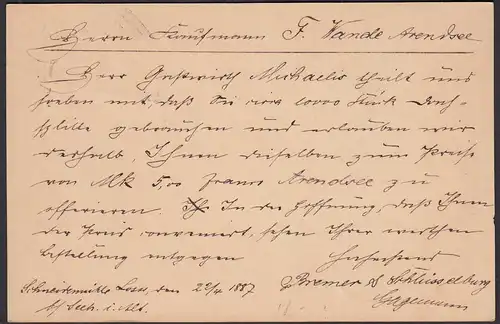 Herrn Kaufmann F. Wande Arendsee
Herr Gastwirth Michaelis theilt uns
soeben mit, daß Sie circa 10000 Stück Dach-
splitte gebrauchen und erlauben wir
derhalb, Ihnen dieselben zum Preise
von Mk 5,00 franco Arendsee zu
offeriren. In der Hoffnung, daß Ihnen
der Preis convenirt, sehen Ihrer werthen
Bestellung entgegen Hochachtend
Schneidemühle den 22/4 1887 Bremer & Schlüsselburg
b/ Seeh. i. Alt. Hagemann